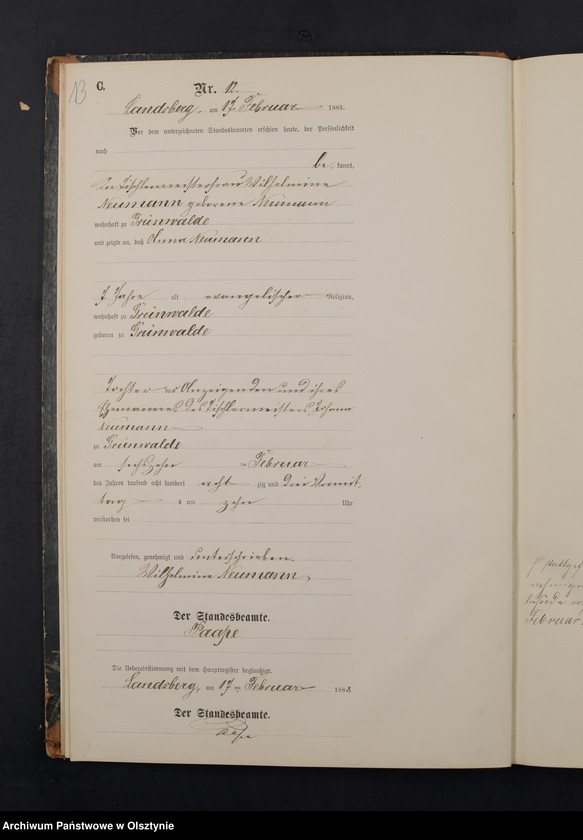 13
C.
Nr. 12.
Landsberg, am 17. Februar 1883.
Vor dem unterzeichneten Standesbeamten erschien heute, der Persönlichkeit
nach
be kannt,
die Tischlermeisterfrau Wilhelmine
Neumann geborene Neumann
wohnhaft zu Grünwalde
und zeigte an, daß Anna Neumann
7 Jahre alt evangelischer Religion,
wohnhaft zu Grünwalde
geboren zu Grünwalde
Tochter der Anzeigenden und ihres
Ehemannes des Tischlermeisters Johann
Neumann
zu Grünwalde
am sechszehn ten Februar
des Jahres tausend acht hundert acht zig und drei Vormit-
tag s um zehn Uhr
verstorben sei
Vorgelesen, genehmigt und unterschrieben.
Wilhelmine Neumann,
Der Standesbeamte.
Paape
Die Uebereinstimmung mit dem Hauptregister beglaubigt.
Landsberg, am 17 ten Februar 1883
Der Standesbeamte.
Februar
Archiwum Państwowe w Olsztynie